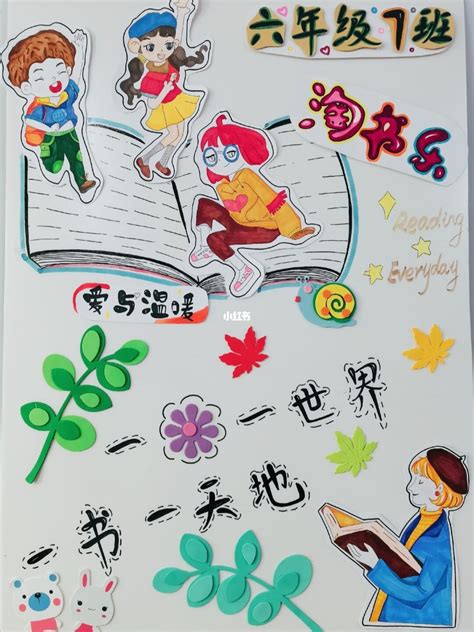 六年级7班
淘书乐
Reading
Everyday
爱与温暖
小红书
一一世界
一书一天地